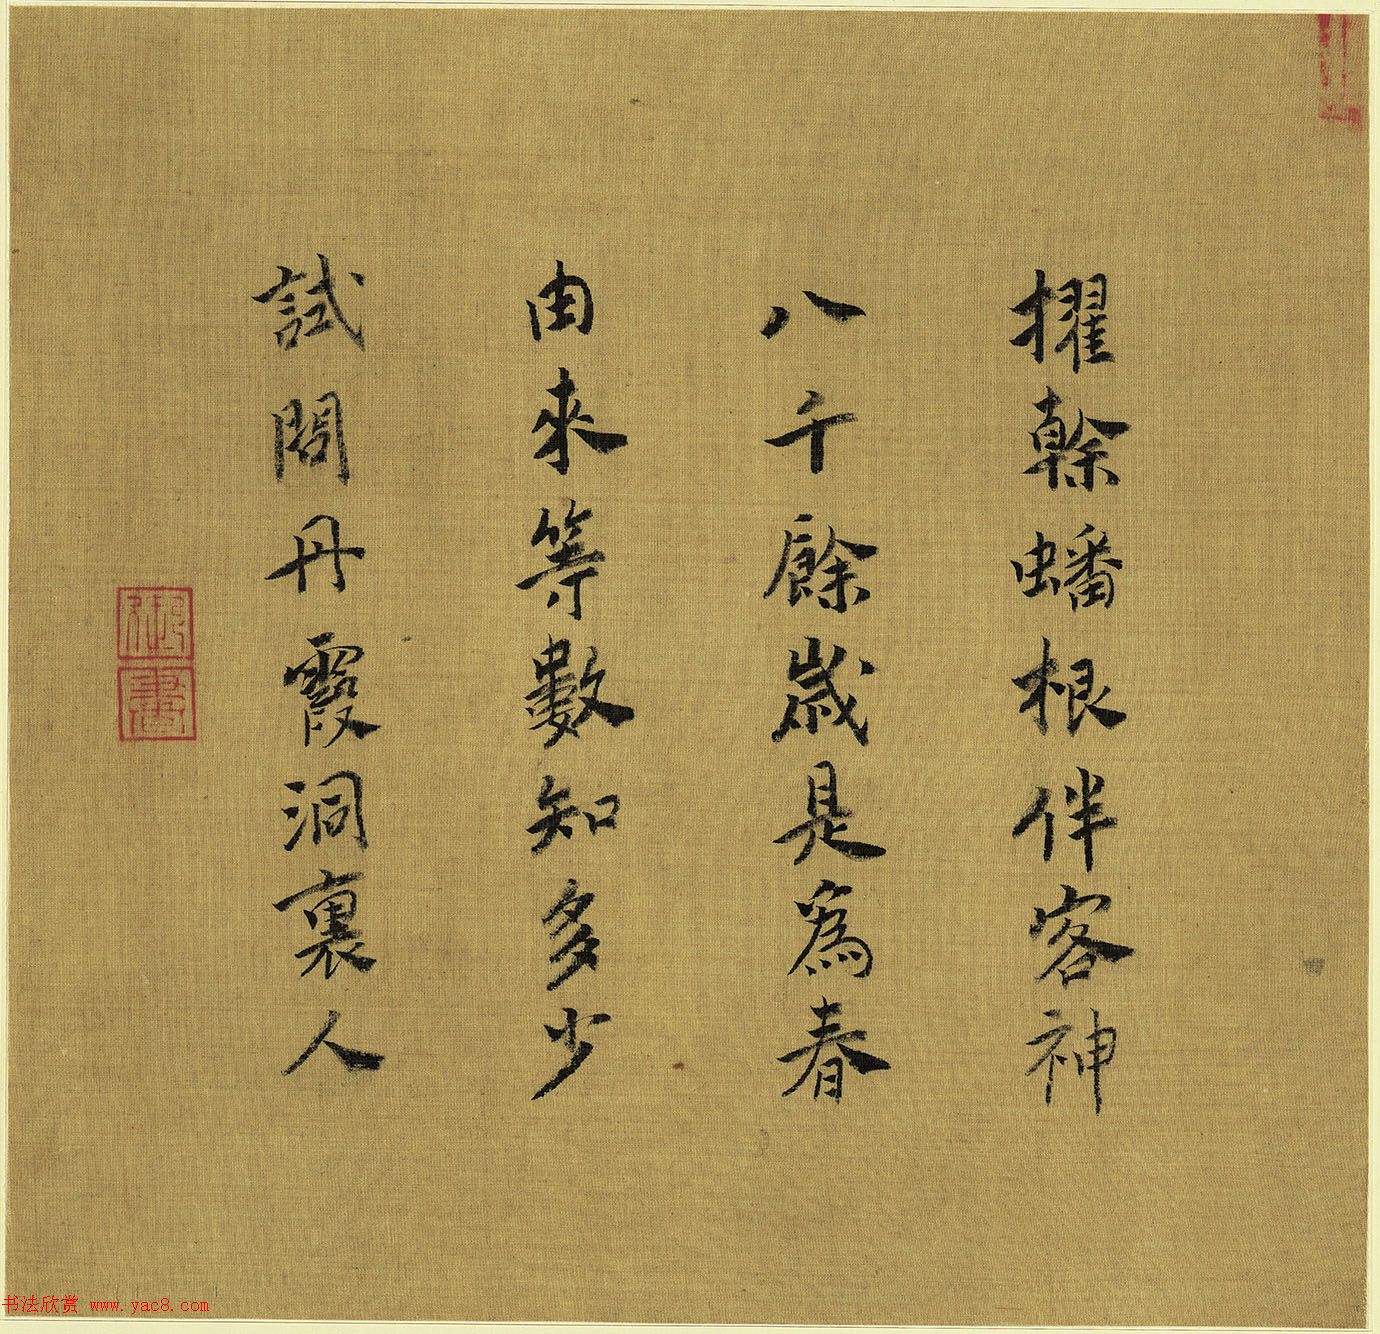 擢榦蟠根伴客神
八千餘歲是為春
由來等數知多少
試問丹霞洞裏人
书法欣赏 www.yac8.com